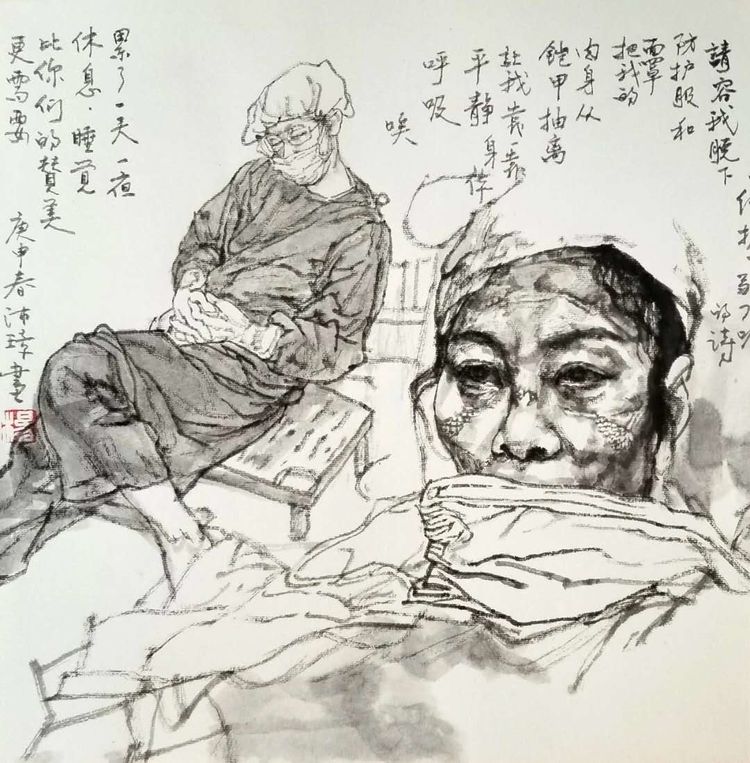 的诗
請容我脱下
防护服和
面罩
把我的
肉身从
铠甲抽离
让我靠一靠
平静 身体
呼吸
唉
累了一天一夜
休息·睡觉
比你们的赞美
更需要
庚申春沛璋画